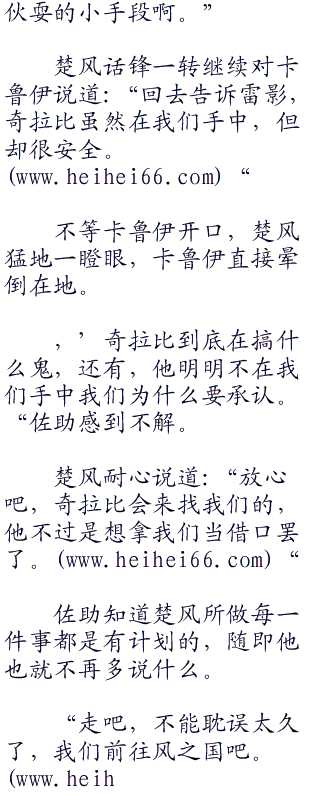 伙耍的小手段啊。”
楚风话锋一转继续对卡
鲁伊说道：“回去告诉雷影，
奇拉比虽然在我们手中，但
却很安全。
(www.heihei66.com)“
不等卡鲁伊开口，楚风
猛地一瞪眼，卡鲁伊直接晕
倒在地。
，’奇拉比到底在搞什
么鬼，还有，他明明不在我
们手中我们为什么要承认。
“佐助感到不解。
楚风耐心说道：“放心
吧，奇拉比会来找我们的，
他不过是想拿我们当借口罢
了。(www.heihei66.com)“
佐助知道楚风所做每一
件事都是有计划的，随即他
也就不再多说什么。
“走吧，不能耽误太久
了，我们前往风之国吧。
(www.heih